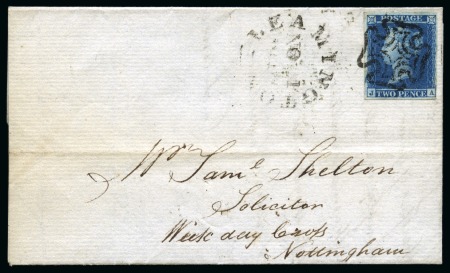 LEAMING
POSTAGE
TWO PENCE
J A
Mr Saml Shelton
Solicitor
Week day Cross
Nottingham